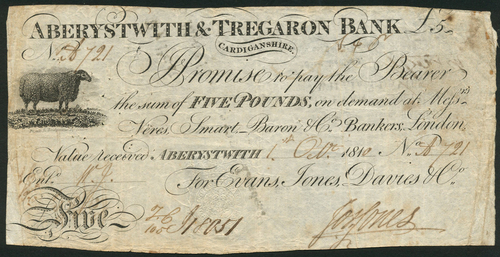 ABERYSTWITH & TREGARON BANK £5
CARDIGANSHIRE.
No. 721
I Promise to pay the Bearer
the sum of FIVE POUNDS, on demand at Messrs
Veres, Smart, Baron & Co. Bankers, London
Value received ABERYSTWITH 1st Octr. 1810 No. 721
Entd.
For Evans, Jones, Davies & Co.
Five
18051
Jones